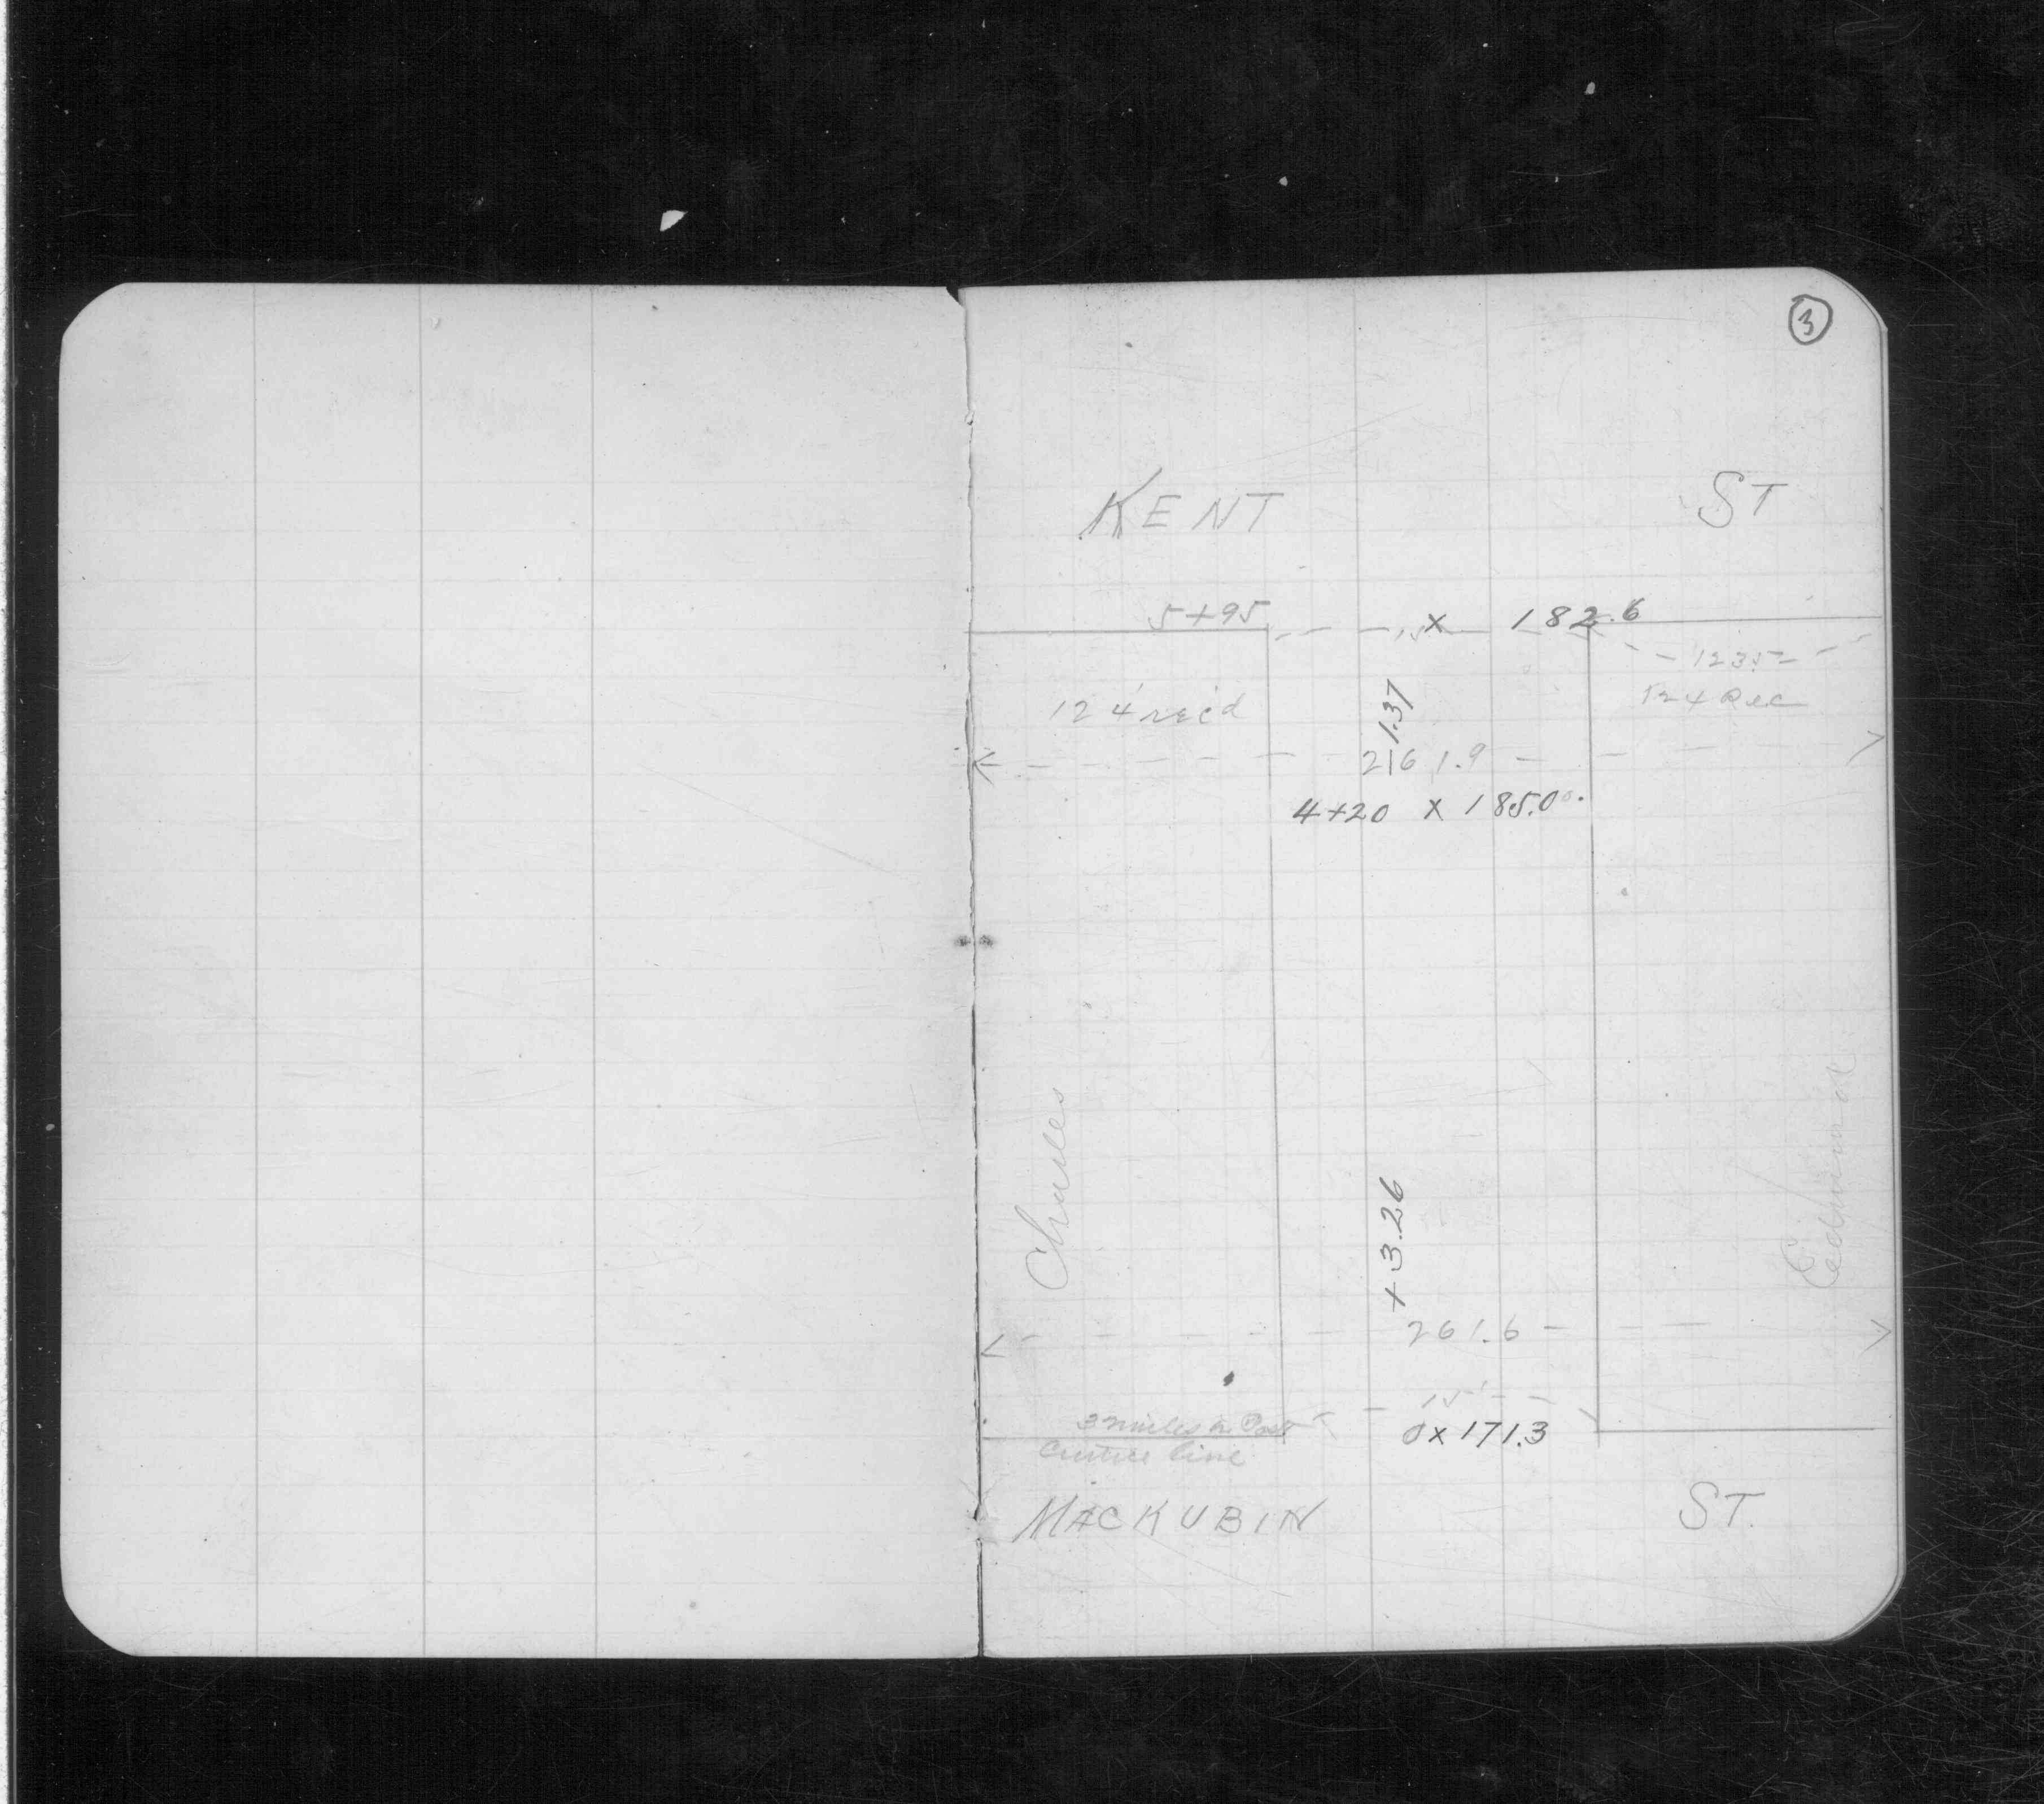 3
KENT ST
5+95 15 x 182.6
123.5
124' rec'd 124 Rec
1.37
261.9
4+20 x 185.00
Charles
Edmund
+3.26
261.6
15'
3 nails in Post
0x171.3
Centre line
MACKUBIN ST.